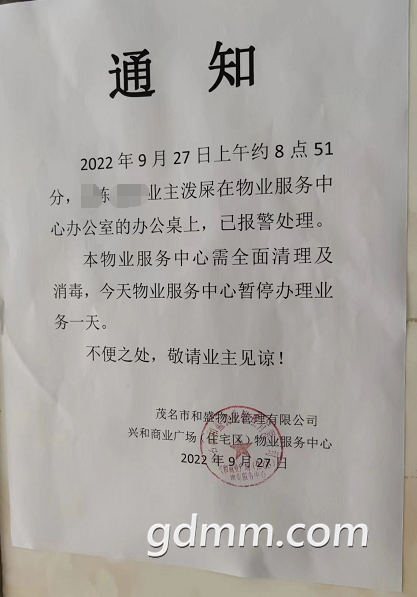 通 知
2022 年 9 月 27 日上午约 8 点 51
分，栋 业主泼屎在物业服务中
心办公室的办公桌上，已报警处理。
本物业服务中心需全面清理及
消毒，今天物业服务中心暂停办理业
务一天。
不便之处，敬请业主见谅！
茂名市和盛物业管理有限公司
兴和商业广场（住宅区）物业服务中心
2022 年 9 月 27 日
gdmm.com